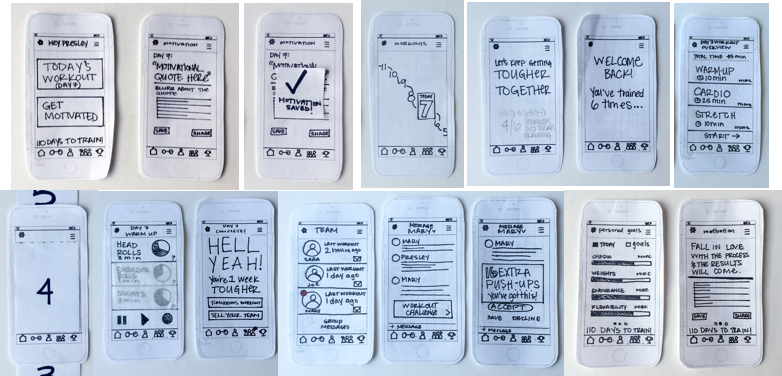 HEY PRESLEY
TODAY'S
WORKOUT
(DAY 7)
GET
MOTIVATED
110 DAYS TO TRAIN!
MOTIVATION
DAY 7:
"MOTIVATIONAL
QUOTE HERE"
BLURB ABOUT THE
QUOTE
SAVE SHARE
MOTIVATION
DAY 7:
"MOTIVATIONAL
MOTIVATION
SAVED!
SAVE SHARE
WORKOUTS
11
10
9
8
TODAY
7
6
5
Let's KEEP GETTING
TOUGHER
TOGETHER
4/6
WELCOME
BACK!
You've trained
6 times...
DAY 7 WORKOUT
OVERVIEW
TOTAL TIME 45 min
WARM-UP
10 min more
CARDIO
25 min more
STRETCH
10 min more
START →
5
4
3
DAY 7
WARM UP
HEAD
ROLLS
3 min
SHOULDER
ROLLS
3 min
SQUATS
DAY 7
COMPLETE!
HELL
YEAH!
You're 1 week
TOUGHER
TOMORROWS WORKOUT
TELL YOUR TEAM
TEAM
LAST WORKOUT
2 hours ago
SARA
LAST WORKOUT
1 day ago
LAST WORKOUT
1 day ago
MARY
GROUP
MESSAGES
MESSAGE
MARY
MARY
PRESLEY
MARY
WORKOUT
CHALLENGE >
+ MESSAGE
MESSAGE
MARY
MARY
16 EXTRA
PUSH-UPS
you've got this!
ACCEPT
SAVE DECLINE
+ MESSAGE
personal goals
TODAY goals
CARDIO MORE
WEIGHTS MORE
ENDURANCE MORE
FLEXABILITY MORE
110 DAYS TO TRAIN!
motivation
FALL IN LOVE
WITH THE PROCESS
& THE RESULTS
WILL COME.
SAVE SHARE
110 DAYS TO TRAIN!